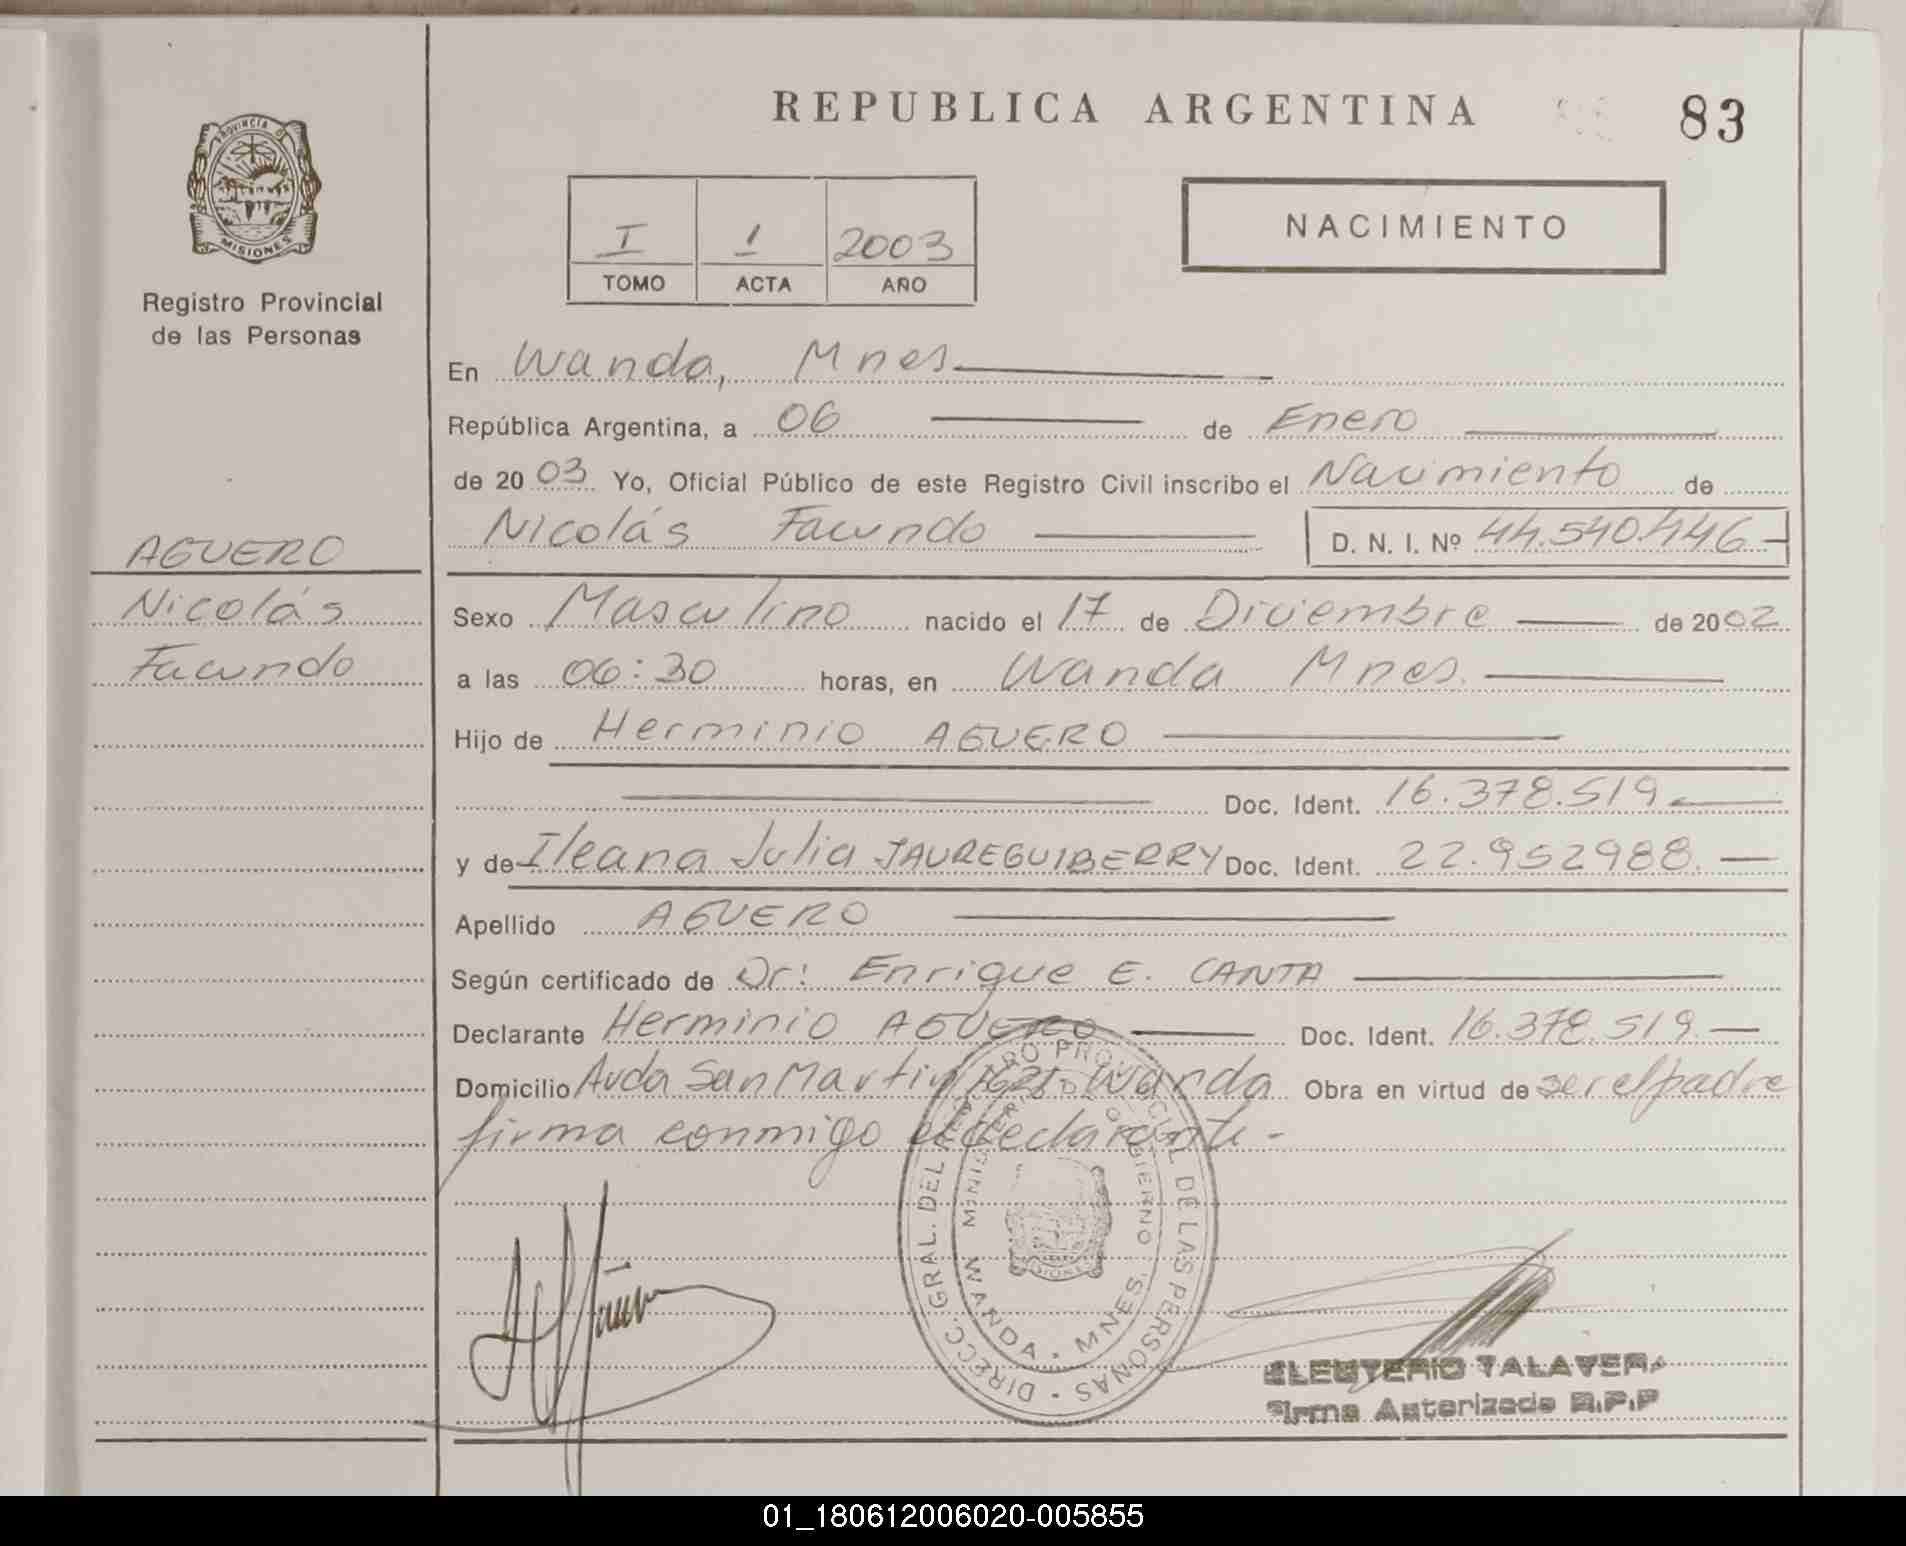 REPUBLICA ARGENTINA
83
PROVINCIA DE
MISIONES
Registro Provincial
de las Personas
I 1 2003
TOMO ACTA AÑO
NACIMIENTO
En Wanda, Mnes
República Argentina, a 06 de Enero
de 2003 Yo, Oficial Público de este Registro Civil inscribo el Nacimiento de
Nicolás Facundo D. N. I. Nº 44.540.446-
AGUERO
Nicolás
Facundo
Sexo Masculino nacido el 17 de Diciembre de 2002
a las 06:30 horas, en Wanda Mnes.
Hijo de Herminio AGUERO
Doc. Ident. 16.378.519
y de Ileana Julia JAUREGUIBERRY Doc. Ident. 22.952988.
Apellido AGUERO
Según certificado de Dr: Enrique E. CANTA
Declarante Herminio AGUERO Doc. Ident. 16.378.519.
Domicilio Avda San Martin 1621 Wanda Obra en virtud de ser el padre
firma conmigo el declarante-
DIRECC. GRAL. DEL REGISTRO PROVINCIAL DE LAS PERSONAS
MINISTERIO DE GOBIERNO
WANDA - MNES.
MISIONES
ELEUTERIO TALAVERA
Firma Autorizada R.P.P
01_180612006020-005855